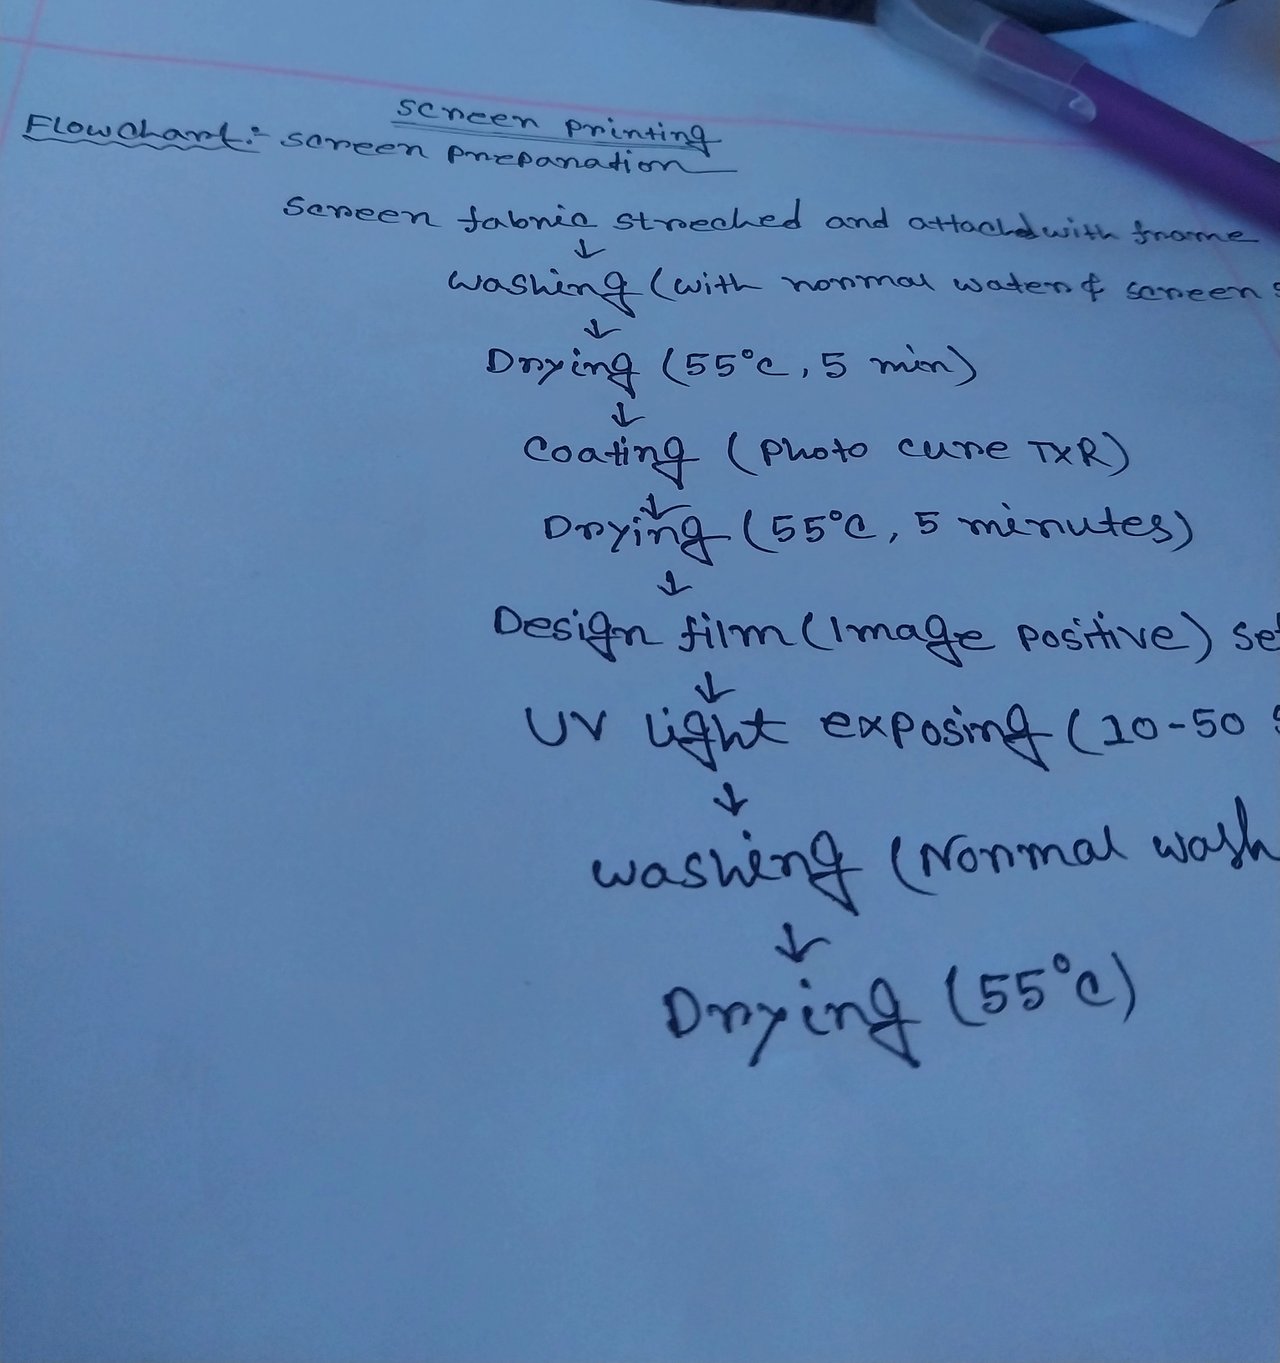 Screen printing
Flowchart:- screen preparation
Screen fabric streched and attachd with frame
↓
Washing (with normal water & screen
↓
Drying (55°c, 5 min)
↓
Coating (Photo cure TXR)
↓
Drying (55°C, 5 minutes)
↓
Design film (Image positive)
↓
UV light exposing (10-50
↓
Washing (Normal wash
↓
Drying (55°c)